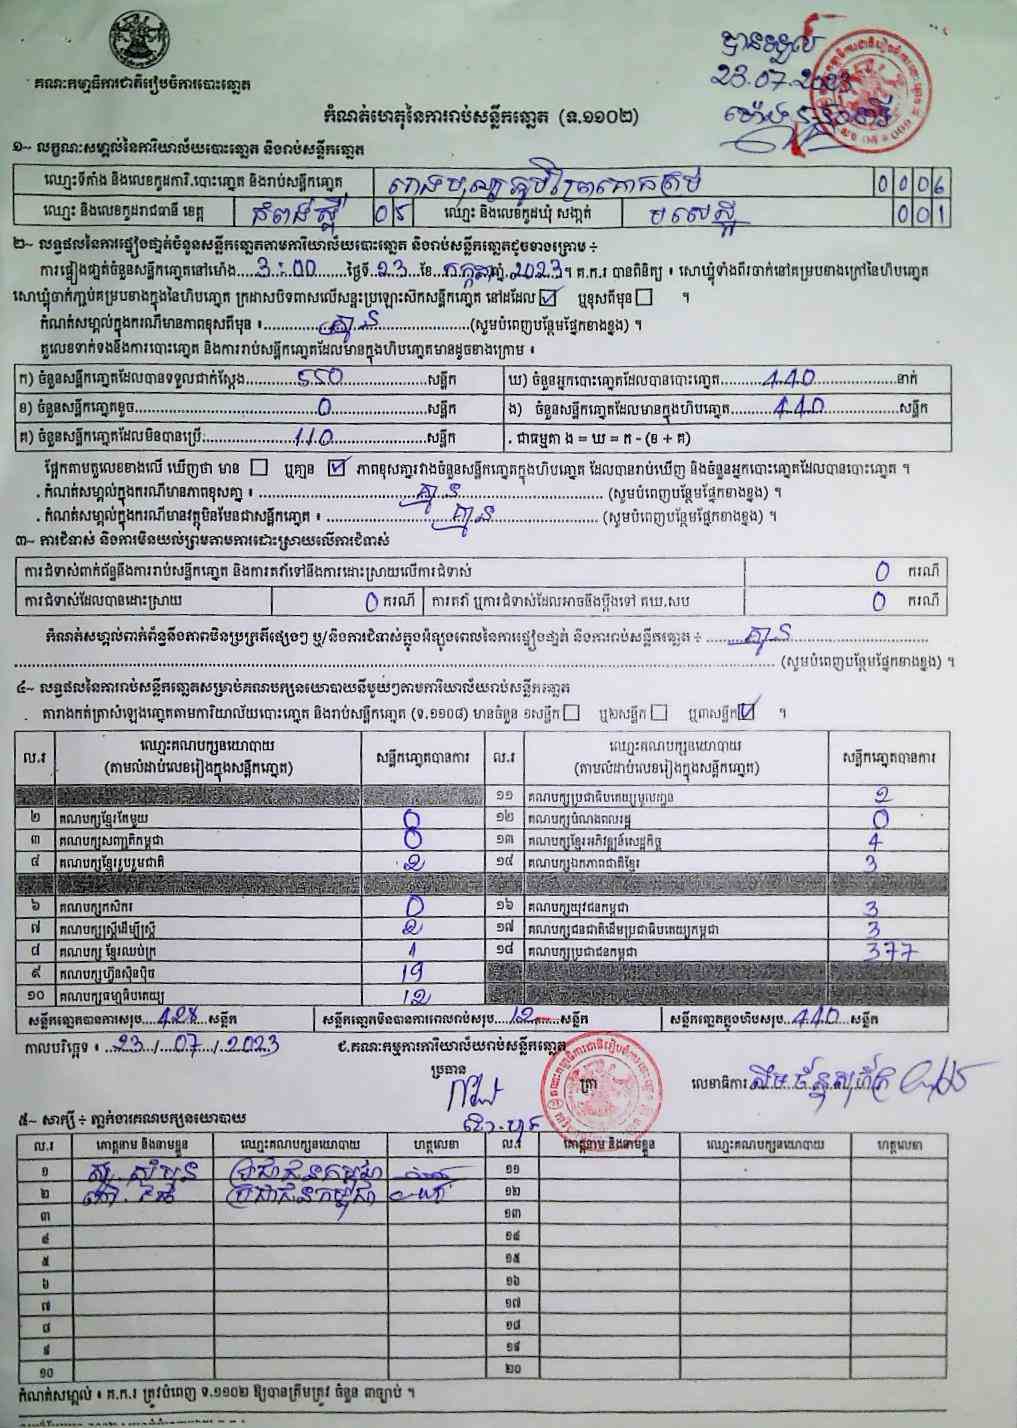 បានទទួល
23.07.2023
គណៈកម្មាធិការជាតិរៀបចំការបោះឆ្នោត
កំណត់ហេតុនៃការរាប់សន្លឹកឆ្នោត (ទ.១១០២)
១~ លក្ខណៈសម្គាល់នៃការិយាល័យបោះឆ្នោត និងរាប់សន្លឹកឆ្នោត
ឈ្មោះទីតាំង និងលេខកូដការិ.បោះឆ្នោត និងរាប់សន្លឹកឆ្នោត 0006
ឈ្មោះ និងលេខកូដរាជធានី ខេត្ត កំពង់ស្ពឺ 05 ឈ្មោះ និងលេខកូដឃុំ សង្កាត់ 001
២~ លទ្ធផលនៃការផ្ទៀងផ្ទាត់ចំនួនសន្លឹកឆ្នោតតាមការិយាល័យបោះឆ្នោត និងរាប់សន្លឹកឆ្នោតដូចខាងក្រោម ÷
ការផ្ទៀងផ្ទាត់ចំនួនសន្លឹកឆ្នោតនៅម៉ោង...3:00......ថ្ងៃទី.23...ខែ.កក្កដា.ឆ្នាំ.2023.។ គ.ក.រ បានពិនិត្យ ៖ សោឃ្លុំទាំងពីរចាក់នៅគម្របខាងក្រៅនៃហិបឆ្នោត
សោឃ្លុំចាក់ភ្ជាប់គម្របខាងក្នុងនៃហិបឆ្នោត ក្រដាសបិទពាសលើសន្ទះប្រឡោះស៊កសន្លឹកឆ្នោត នៅដដែល ☑ ឬខុសពីមុន ☐ ។
កំណត់សម្គាល់ក្នុងករណីមានភាពខុសពីមុន ៖.........គ្មាន.........(សូមបំពេញបន្ថែមផ្នែកខាងខ្នង) ។
តួលេខទាក់ទងនឹងការបោះឆ្នោត និងការរាប់សន្លឹកឆ្នោតដែលមានក្នុងហិបឆ្នោតមានដូចខាងក្រោម ៖
ក) ចំនួនសន្លឹកឆ្នោតដែលបានទទួលជាក់ស្តែង.........550.........សន្លឹក ឃ) ចំនួនអ្នកបោះឆ្នោតដែលបានបោះឆ្នោត.........440.........នាក់
ខ) ចំនួនសន្លឹកឆ្នោតខូច.........0.........សន្លឹក ង) ចំនួនសន្លឹកឆ្នោតដែលមានក្នុងហិបឆ្នោត.........440.........សន្លឹក
គ) ចំនួនសន្លឹកឆ្នោតដែលមិនបានប្រើ.........110.........សន្លឹក . ជាធម្មតា ង = ឃ = ក - (ខ + គ)
ផ្អែកតាមតួលេខខាងលើ ឃើញថា មាន ☐ ឬគ្មាន ☑ ភាពខុសគ្នារវាងចំនួនសន្លឹកឆ្នោតក្នុងហិបឆ្នោត ដែលបានរាប់ឃើញ និងចំនួនអ្នកបោះឆ្នោតដែលបានបោះឆ្នោត ។
. កំណត់សម្គាល់ក្នុងករណីមានភាពខុសគ្នា ៖ .........គ្មាន......... (សូមបំពេញបន្ថែមផ្នែកខាងខ្នង) ។
. កំណត់សម្គាល់ក្នុងករណីមានវត្ថុមិនមែនជាសន្លឹកឆ្នោត ៖ .........គ្មាន......... (សូមបំពេញបន្ថែមផ្នែកខាងខ្នង) ។
៣~ ការជំទាស់ និងការមិនយល់ព្រមតាមការដោះស្រាយលើការជំទាស់
ការជំទាស់ពាក់ព័ន្ធនឹងការរាប់សន្លឹកឆ្នោត និងការតវ៉ាទៅនឹងការដោះស្រាយលើការជំទាស់ 0 ករណី
ការជំទាស់ដែលបានដោះស្រាយ 0 ករណី ការតវ៉ា ឬការជំទាស់ដែលអាចនឹងប្តឹងទៅ គឃ.សប 0 ករណី
កំណត់សម្គាល់ពាក់ព័ន្ធនឹងភាពមិនប្រក្រតីផ្សេងៗ ឬ/និងការជំទាស់ក្នុងអំឡុងពេលនៃការផ្ទៀងផ្ទាត់ និងការរាប់សន្លឹកឆ្នោត ÷ ......គ្មាន......
......... (សូមបំពេញបន្ថែមផ្នែកខាងខ្នង) ។
៤~ លទ្ធផលនៃការរាប់សន្លឹកឆ្នោតសម្រាប់គណបក្សនយោបាយនីមួយៗតាមការិយាល័យរាប់សន្លឹកឆ្នោត
តារាងកត់ត្រាសំឡេងឆ្នោតតាមការិយាល័យបោះឆ្នោត និងរាប់សន្លឹកឆ្នោត (ទ.១១០៨) មានចំនួន ១សន្លឹក ☐ ឬ២សន្លឹក ☐ ឬ៣សន្លឹក ☑ ។
ល.រ ឈ្មោះគណបក្សនយោបាយ (តាមលំដាប់លេខរៀងក្នុងសន្លឹកឆ្នោត) សន្លឹកឆ្នោតបានការ ល.រ ឈ្មោះគណបក្សនយោបាយ (តាមលំដាប់លេខរៀងក្នុងសន្លឹកឆ្នោត) សន្លឹកឆ្នោតបានការ
១១ គណបក្សប្រជាធិបតេយ្យមូលដ្ឋាន 2
២ គណបក្សខ្មែរតែមួយ 0 ១២ គណបក្សបំណងពលរដ្ឋ 0
៣ គណបក្សសញ្ជាតិកម្ពុជា 0 ១៣ គណបក្សខ្មែរអភិវឌ្ឍន៍សេដ្ឋកិច្ច 4
៤ គណបក្សខ្មែររួបរួមជាតិ 2 ១៤ គណបក្សឯកភាពជាតិខ្មែរ 3
៦ គណបក្សកសិករ 0 ១៦ គណបក្សយុវជនកម្ពុជា 3
៧ គណបក្សស្ត្រីដើម្បីស្ត្រី 2 ១៧ គណបក្សជនជាតិដើមប្រជាធិបតេយ្យកម្ពុជា 3
៨ គណបក្ស ខ្មែរឈប់ក្រ 1 ១៨ គណបក្សប្រជាជនកម្ពុជា 377
៩ គណបក្សហ្វ៊ុនស៊ិនប៉ិច 19
១០ គណបក្សធម្មាធិបតេយ្យ 12
សន្លឹកឆ្នោតបានការសរុប....428....សន្លឹក សន្លឹកឆ្នោតមិនបានការពេលរាប់សរុប...12......សន្លឹក សន្លឹកឆ្នោតក្នុងហិបសរុប..440....សន្លឹក
កាលបរិច្ឆេទ ៖ ..23../..07../.2023 ជ.គណៈកម្មការការិយាល័យរាប់សន្លឹកឆ្នោត
ប្រធាន ត្រា លេខាធិការ
៥~ សាក្សី ÷ ភ្នាក់ងារគណបក្សនយោបាយ
ល.រ គោត្តនាម និងនាមខ្លួន ឈ្មោះគណបក្សនយោបាយ ហត្ថលេខា ល.រ គោត្តនាម និងនាមខ្លួន ឈ្មោះគណបក្សនយោបាយ ហត្ថលេខា
១ ប្រជាជនកម្ពុជា ១១
២ ប្រជាជនកម្ពុជា ១២
៣ ១៣
៤ ១៤
៥ ១៥
៦ ១៦
៧ ១៧
៨ ១៨
៩ ១៩
១០ ២០
កំណត់សម្គាល់ ៖ គ.ក.រ ត្រូវបំពេញ ទ.១១០២ ឱ្យបានត្រឹមត្រូវ ចំនួន ៣ច្បាប់ ។